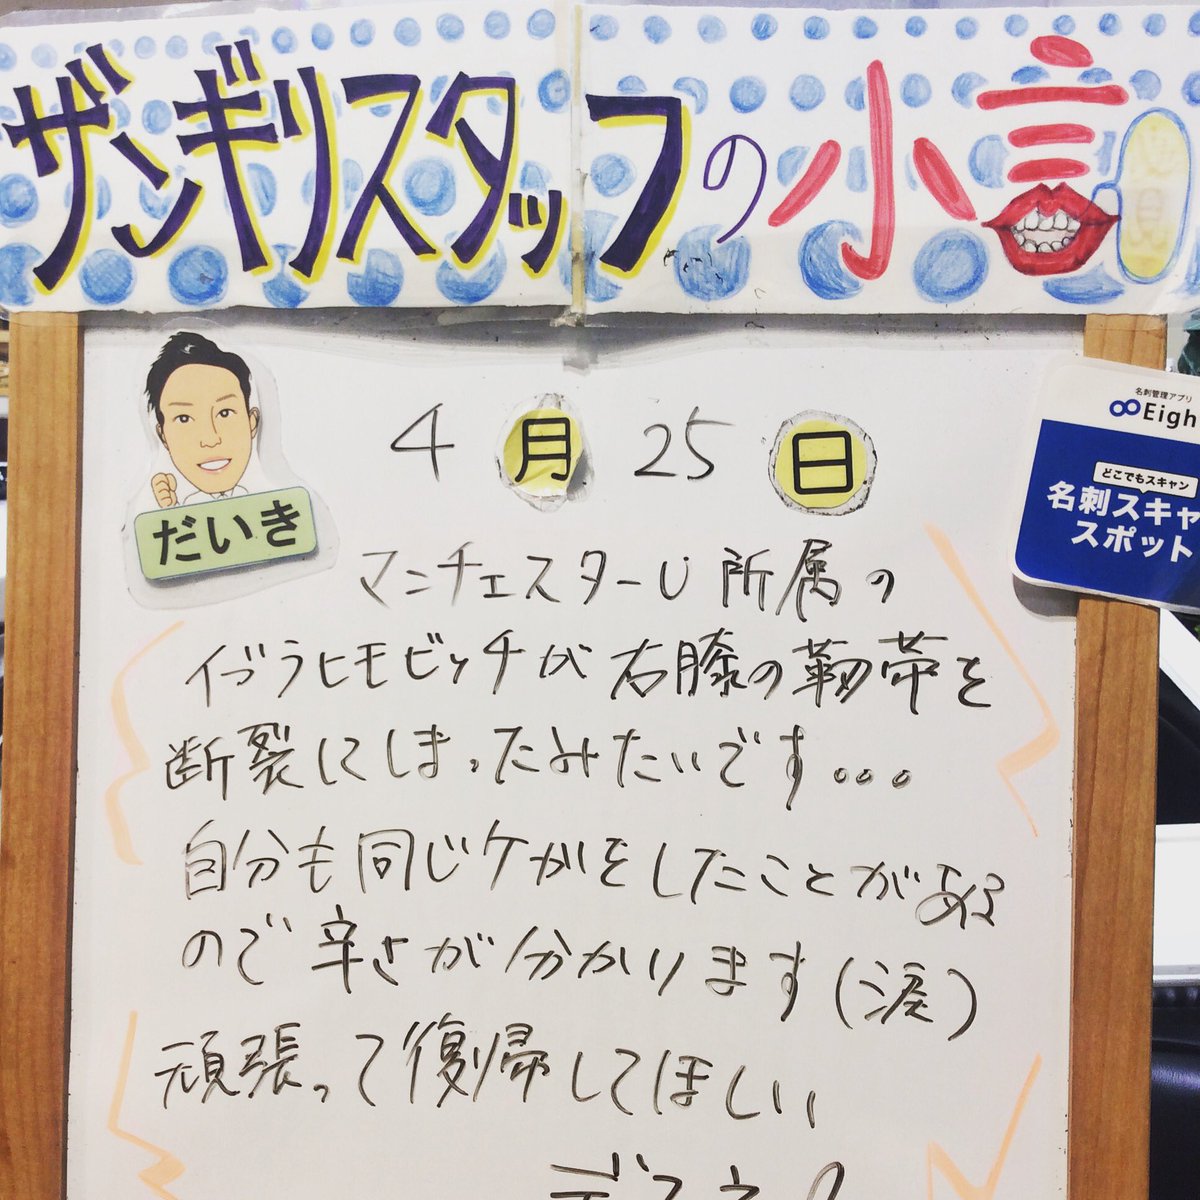 ザンギリスタッフの小言
だいき
4月25日
名刺管理アプリ
Eigh
どこでもスキャン
名刺スキャ
スポット
マンチェスターU所属の
イブラヒモビッチが右膝の靭帯を
断裂してしまったみたいです...
自分も同じケガをしたことがある
ので辛さが分かります(涙)
頑張って復帰してほしい